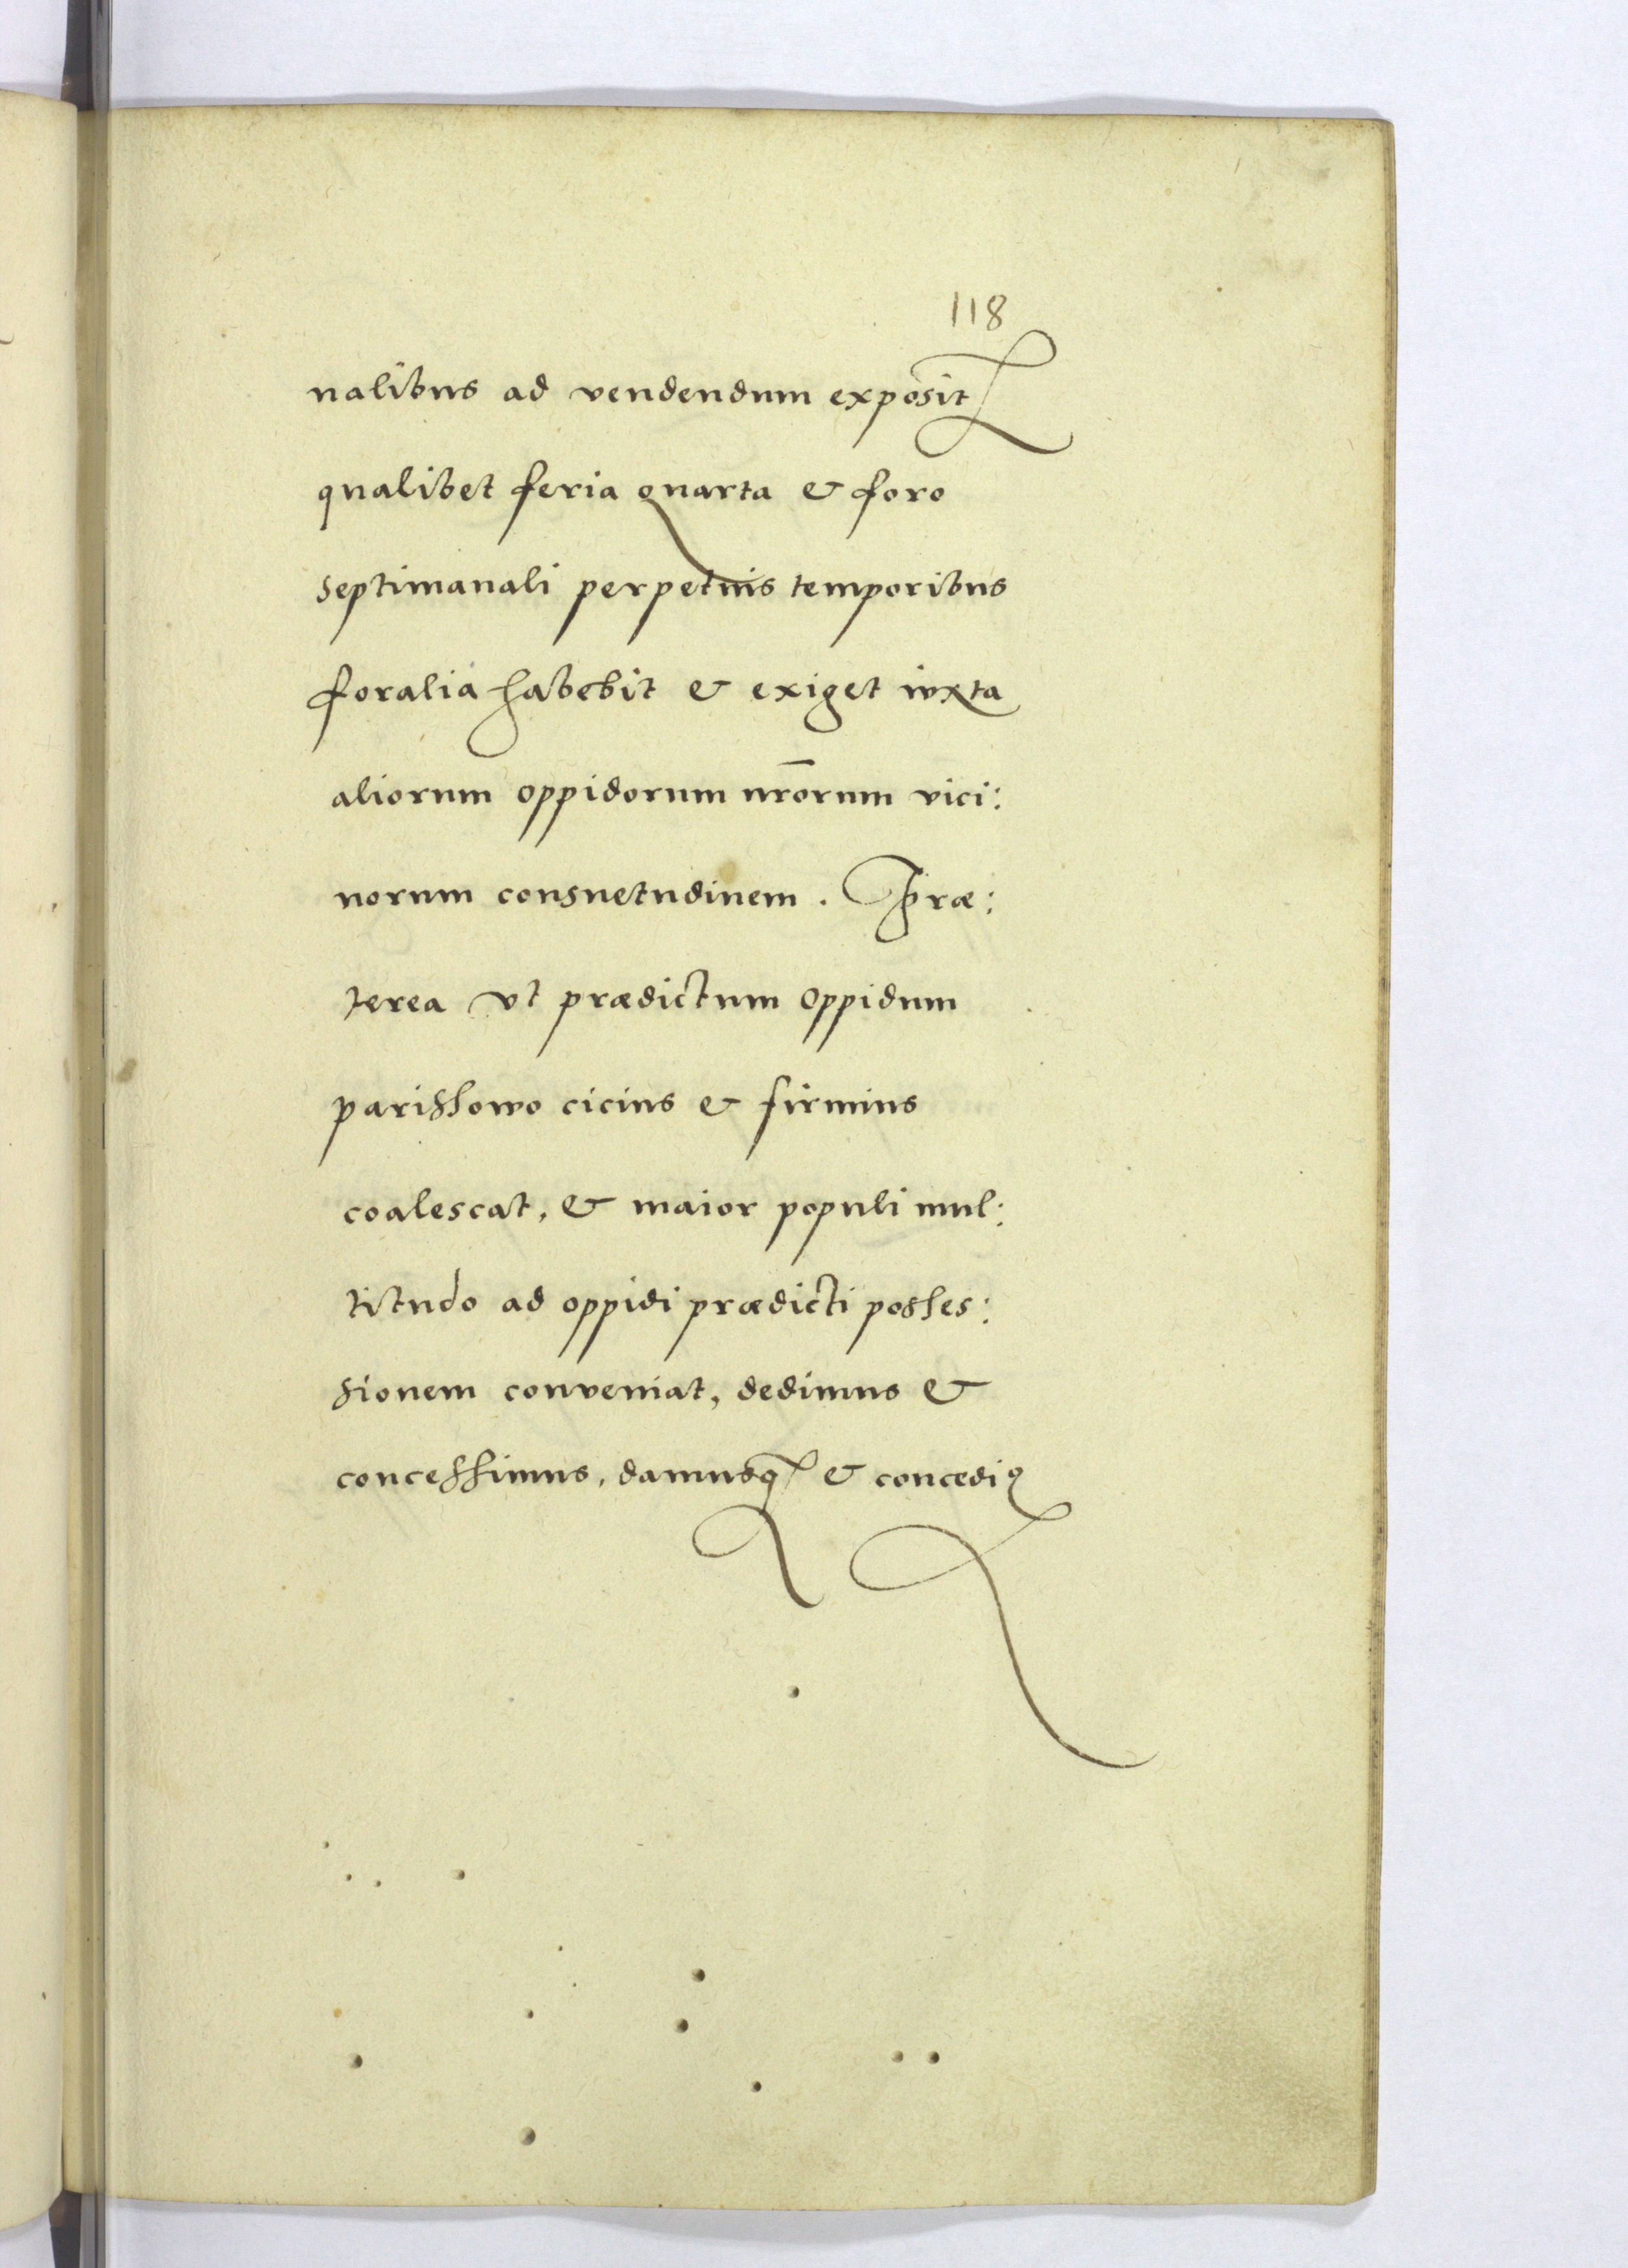 118
nalibus ad vendendum exposit
qualibet feria quarta & foro
septimanali perpetuis temporibus
foralia habebit & exiget iuxta
aliorum oppidorum nr̄orum vici:
norum consuetudinem. Præ:
terea vt prædictum oppidum
parissowo cicius & firmius
coalescat, & maior populi mul:
titudo ad oppidi prædicti posses:
sionem conveniat, dedimus &
concessimus, damusq & concediꝰ